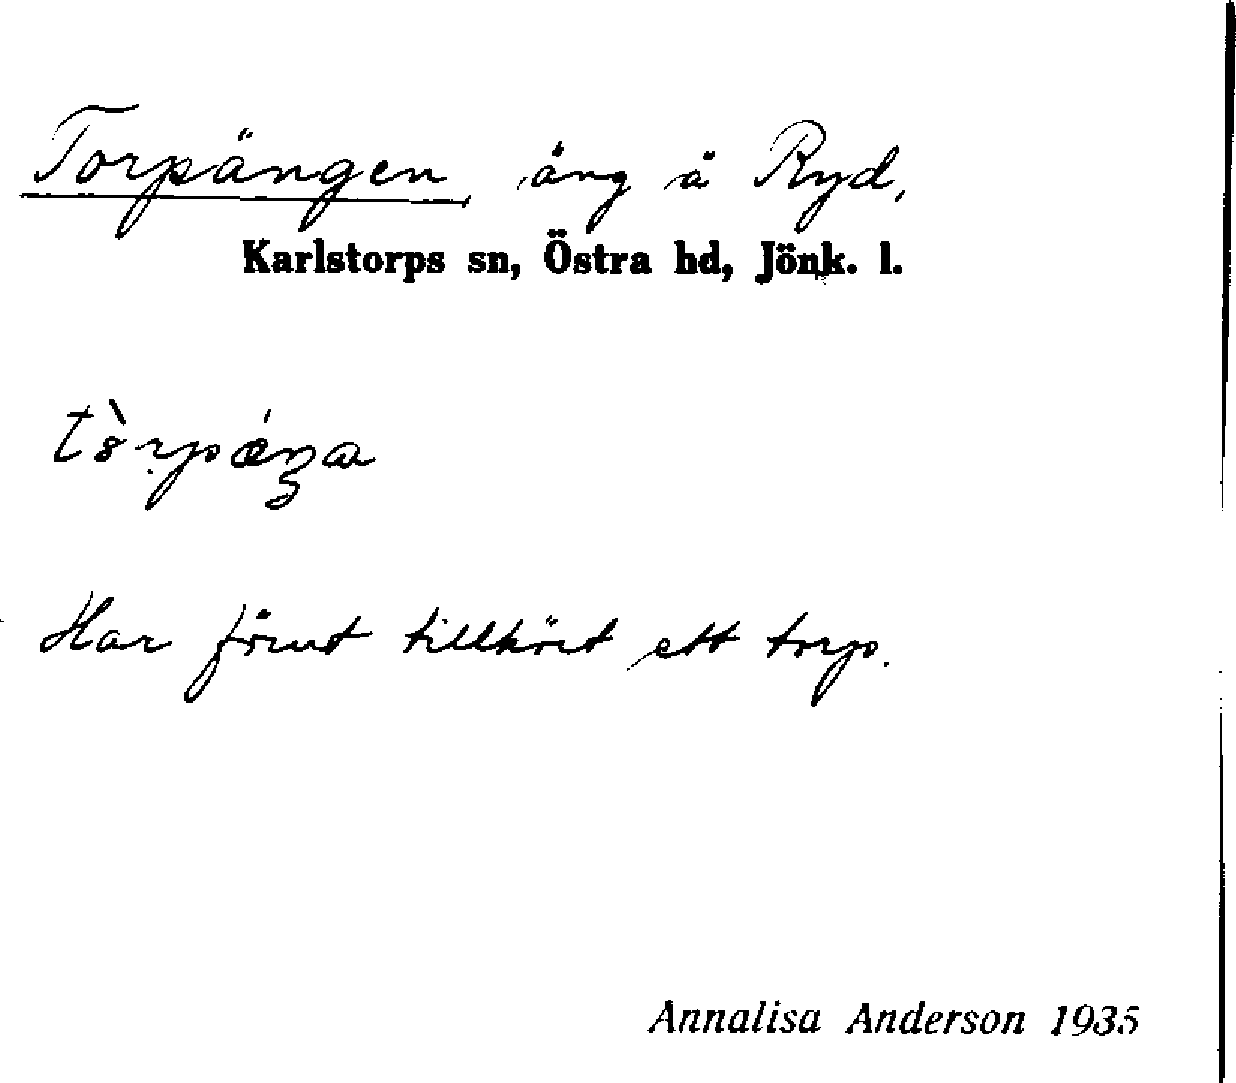 Torpängen, äng å Ryd,
Karlstorps sn, Östra hd, Jönk. l.
Har förut tillhört ett torp.
Annalisa Anderson 1935